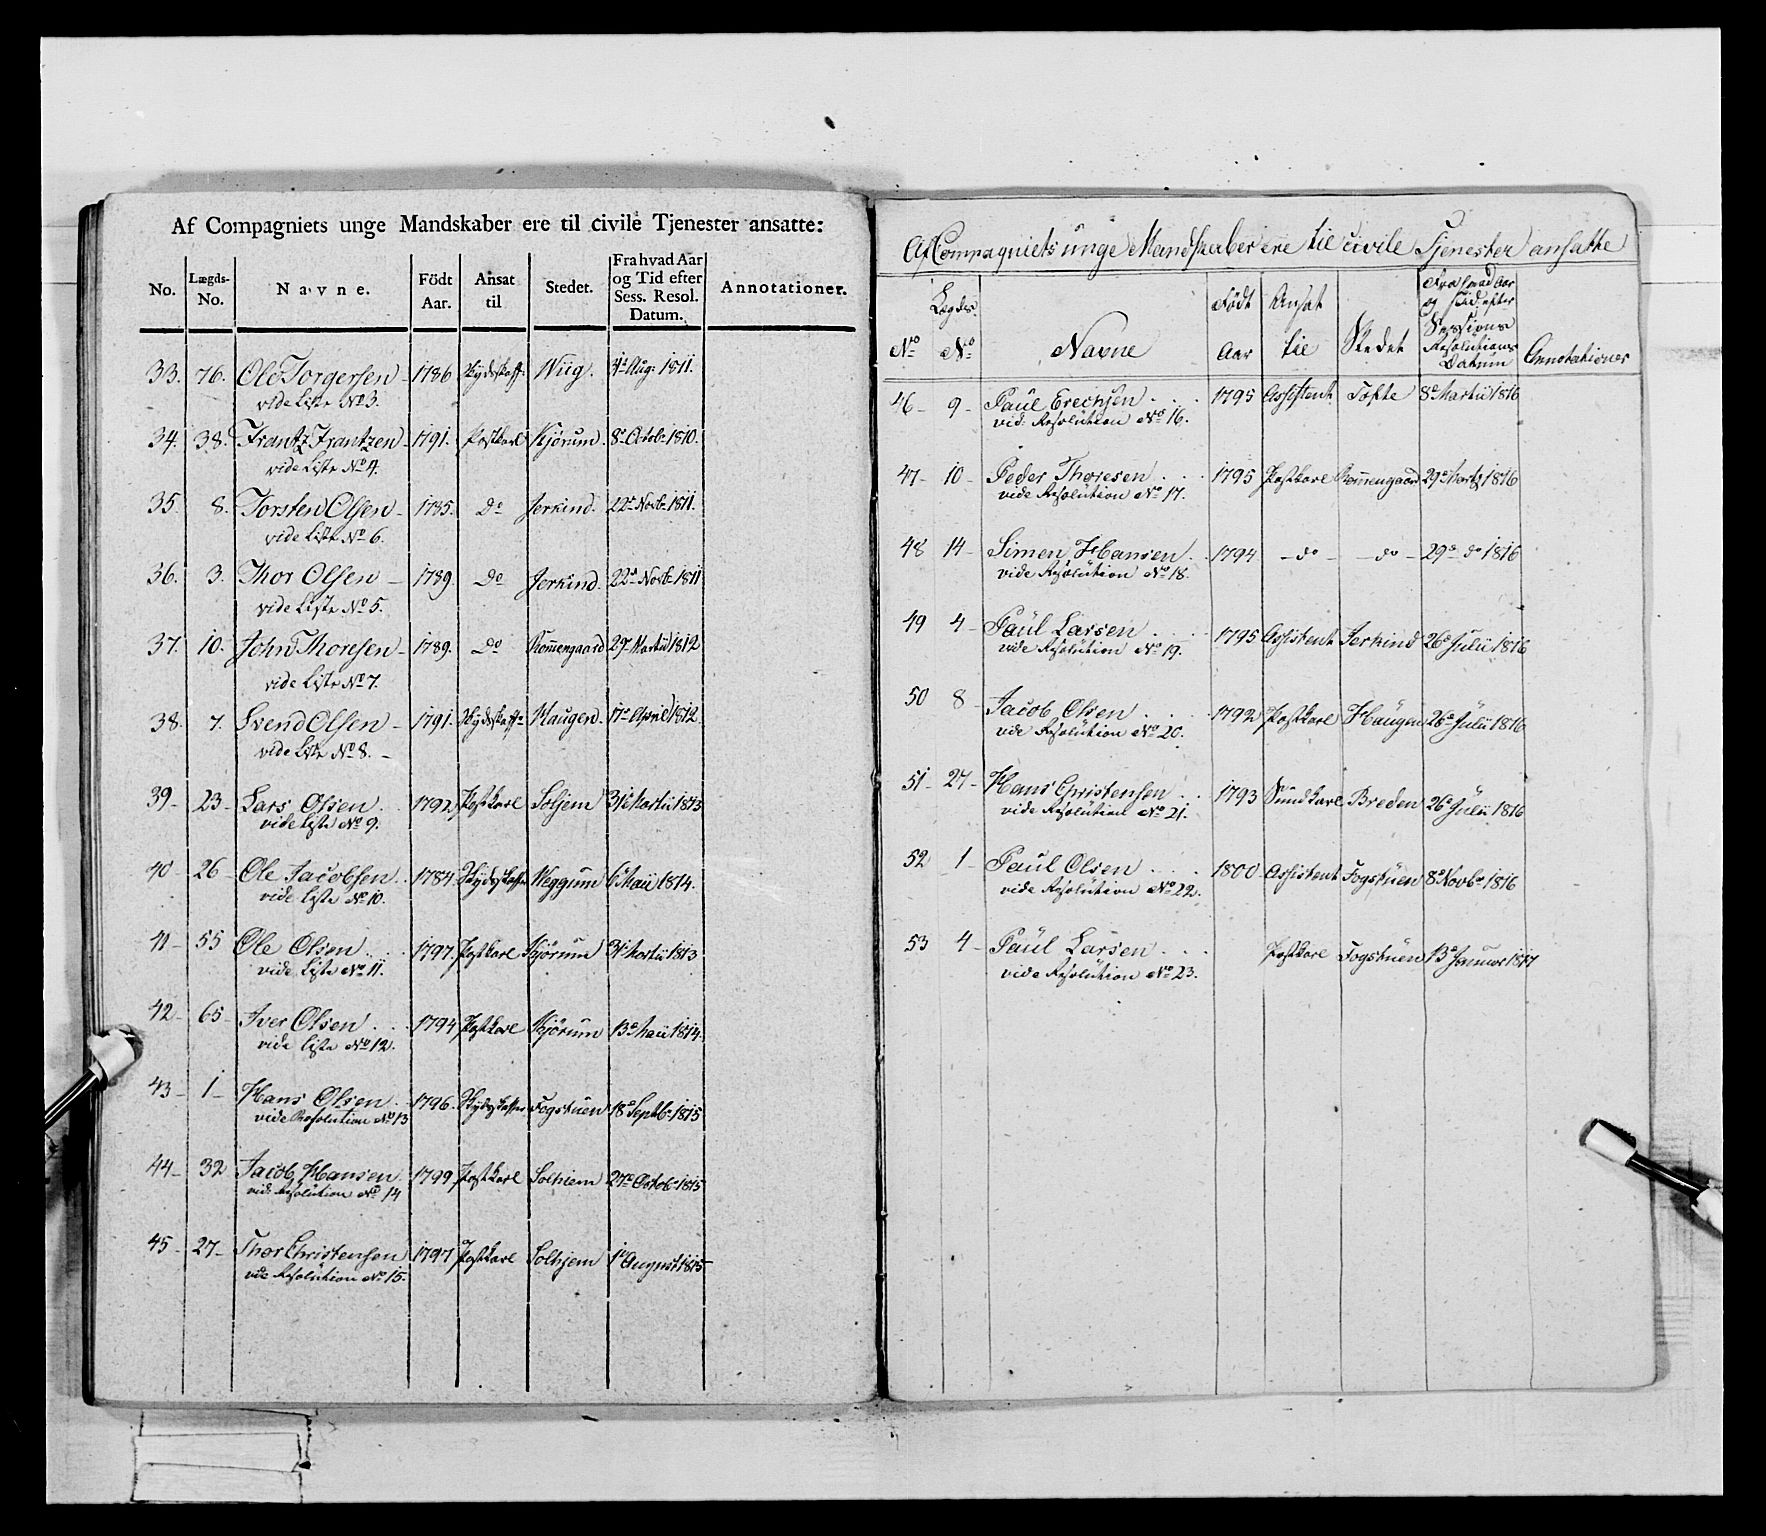 Af Compagniets unge Mandskaber ere til civile Tjenester ansatte:
No. Lægds-No. Navne. Födt Aar. Ansat til Stedet. Fra hvad Aar og Tid efter Sess. Resol. Datum. Annotationer.
33. 76. Ole Torgersen 1786 Skydsskaff. Wiig. Aug: 1811.
vide Liste No 3.
34. 38. Frantz Frantzen 1791. Postkarl Kjørum. 8de Octob. 1810.
vide Liste No 4.
35. 8. Torsten Olsen 1785. do Jerkind. 22de Novb. 1811.
vide Liste No 6.
36. 3. Thor Olsen 1789. do Jerkind. 22de Novb. 1811
vide Liste No 5.
37. 10. John Thoresen 1789. do Rommengaard 27 Martii 1812
vide Liste No 7.
38. 7. Svend Olsen 1791. Skydsskaffer Haugen. 17de April 1812.
vide Liste No 8.
39 23 Lars Olsen 1792. Postkarl Soljem 31te Martii 1813
vide Liste No 9.
40 26 Ole Jacobsen 1784. Skydsskaffer Weggum 6te Maii 1814.
vide liste No 10.
41 55 Ole Olsen 1797. Postkarl Kjörum 31te Martii 1813
vide Liste No 11.
42 65 Iver Olsen 1794 Postkarl Kjörum 13de Maii 1814.
vide liste No 12.
43 1 Hans Olsen 1796. Skydsskaffer Fogstuen 18de Septb. 1815
vide Resolution No 13
44 32 Jacob Hansen 1799 Postkarl Solhiem 27de Octob. 1815
vide Resolution No 14
45 27 Thor Christensen 1797 Postkarl Solhjem 1te August 1815
vide Resolution No 15.
Af Compagniets unge Mandskaber ere til civile Tjenester ansatte
No Lægds No Navne Födt Aar Ansat til Stedet Fra hvad Aar og Tid efter Sessions Resolutions Datum Annotationer
46 9 Paul Erechsen 1795 Assistent Tofte 8de Martii 1816
vid: Resolution No 16.
47 10 Peder Thoresen 1795 Postkarl Rommengaard 29de Marts 1816
vide Resolution No 17.
48 14 Simen Hansen 1794 do do 29de do 1816
vide Resolution No 18.
49 4 Paul Larsen 1795 Assistent Jerkind 26de Julii 1816
vide Resolution No 19.
50 8 Jacob Olsen 1792 Postkarl Haugen 26de Julii 1816
vide Resolution No 20.
51 27 Hans Christensen 1793 Sundkarl Breden 26de Julii 1816
vide Resolution No 21.
52 1 Paul Olsen 1800 Assistent Fogstuen 8de Novbr 1816
vide Resolution No 22.
53 4 Paul Larsen Postkarl Fogstuen 13de Januar 1817
vide Resolution No 23.